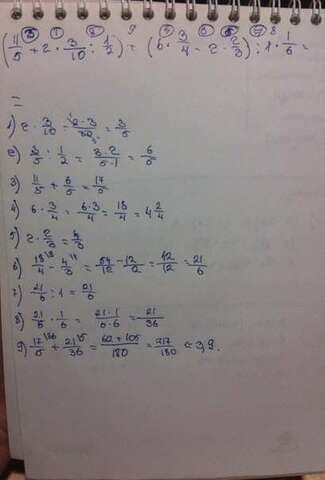 3 1 2 9 5 6 7 8
(11/5 + 2 · 3/10 : 1/2) + (6 · 3/4 - 2 · 2/3) : 1 · 1/6 =
=
1) 2 · 3/10 = 2·3/10 = 3/5
2) 3/5 : 1/2 = 3·2/5·1 = 6/5
3) 11/5 + 6/5 = 17/5
4) 6 · 3/4 = 6·3/4 = 18/4 = 4 2/4
5) 2 · 2/3 = 4/3
6) 18/4 - 4/3 = 54 - 12/12 = 42/12 = 21/6
7) 21/6 : 1 = 21/6
8) 21/6 · 1/6 = 21·1/6·6 = 21/36
9) 17/5 + 21/36 = 612 + 105/180 = 717/180 ≈ 3,9.